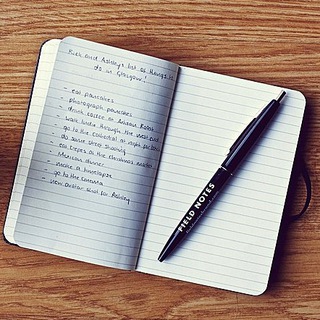 Rick and Ashley's list of things to
do in Glasgow!
- eat pancakes
- photograph pancakes
- drink coffee at Artisan Roast
- walk through the west end
- go to the cathedral at night
- do some street shooting
- eat crepes at the Christmas market
- Mexican dinner
- make a timelapse
- go to the cinema
- new outfit for Ashley
FIELD NOTES